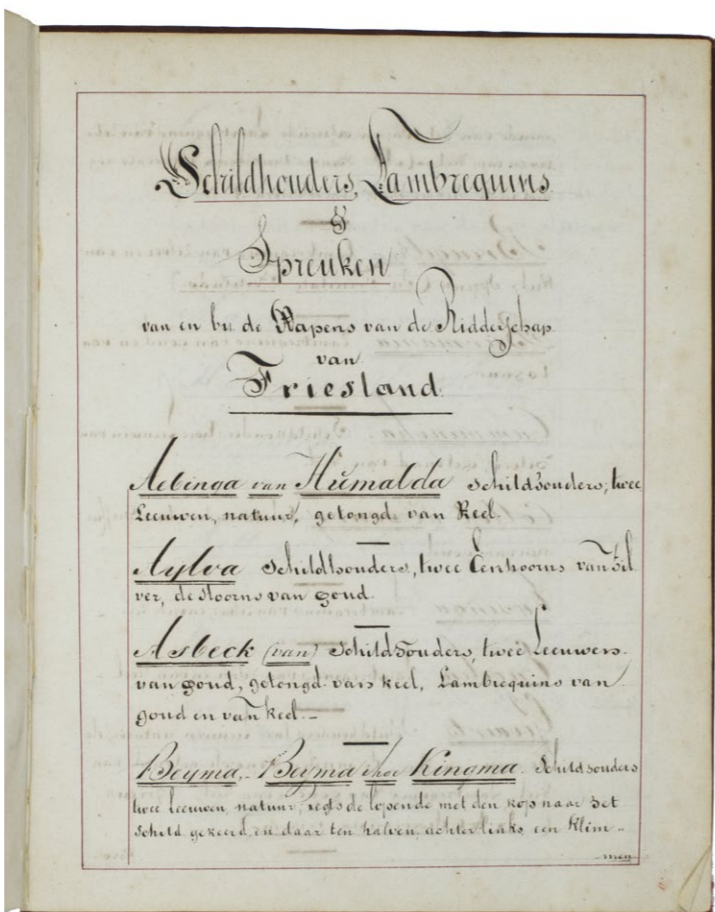 Schildhouders, Lambrequins
&
Spreuken
van en bij de Wapens van de Ridderschap
van
Friesland.
Aebinga van Humalda Schildhouders, twee
Leeuwen, natuur, getongd van Keel.
Aylva Schildhouders, twee Eenhoorns van Zil
ver, de Hoorns van goud.
Asbeck (van) Schildhouders, twee Leeuwen
van goud, getongd van keel, Lambrequins van
goud en van keel.
Beyma, Beyma thoe Kingma. Schildhouders
twee leeuwen, natuur, regts de lopende met den kop naar het
schild gekeerd, en daar ten halven, achter links, een klim-
men